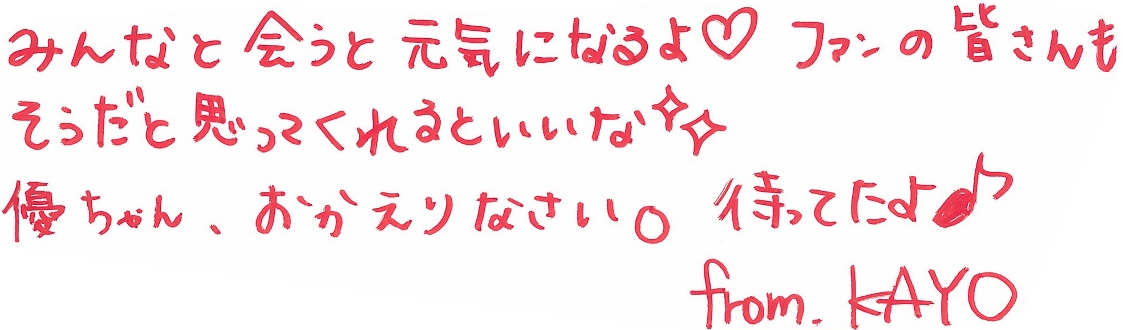 みんなと会うと元気になるよ♡ ファンの皆さんも
そうだと思ってくれるといいな✧✧
優ちゃん、おかえりなさい。待ってたよ♪
from. KAYO